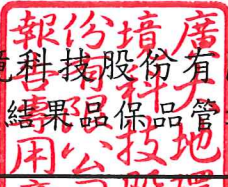 境科技股份有
結果品保品管
廣大地環
境科技股
份有限公
報告專用